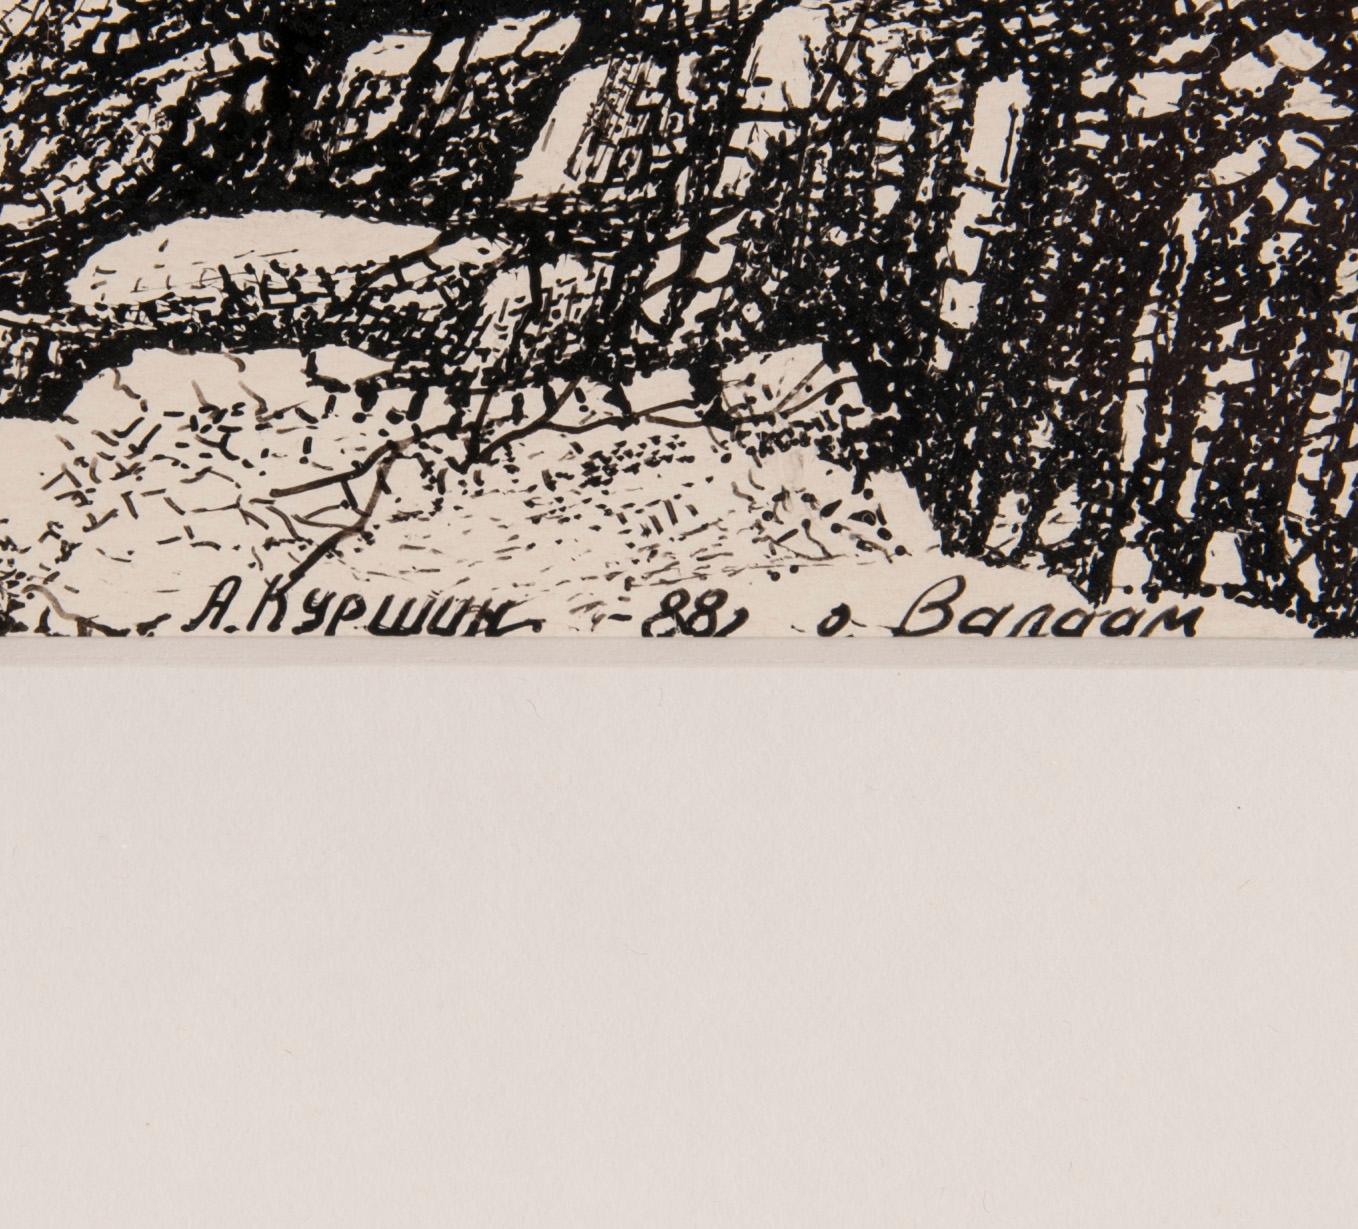 А. Куршин - 88, о. Валаам